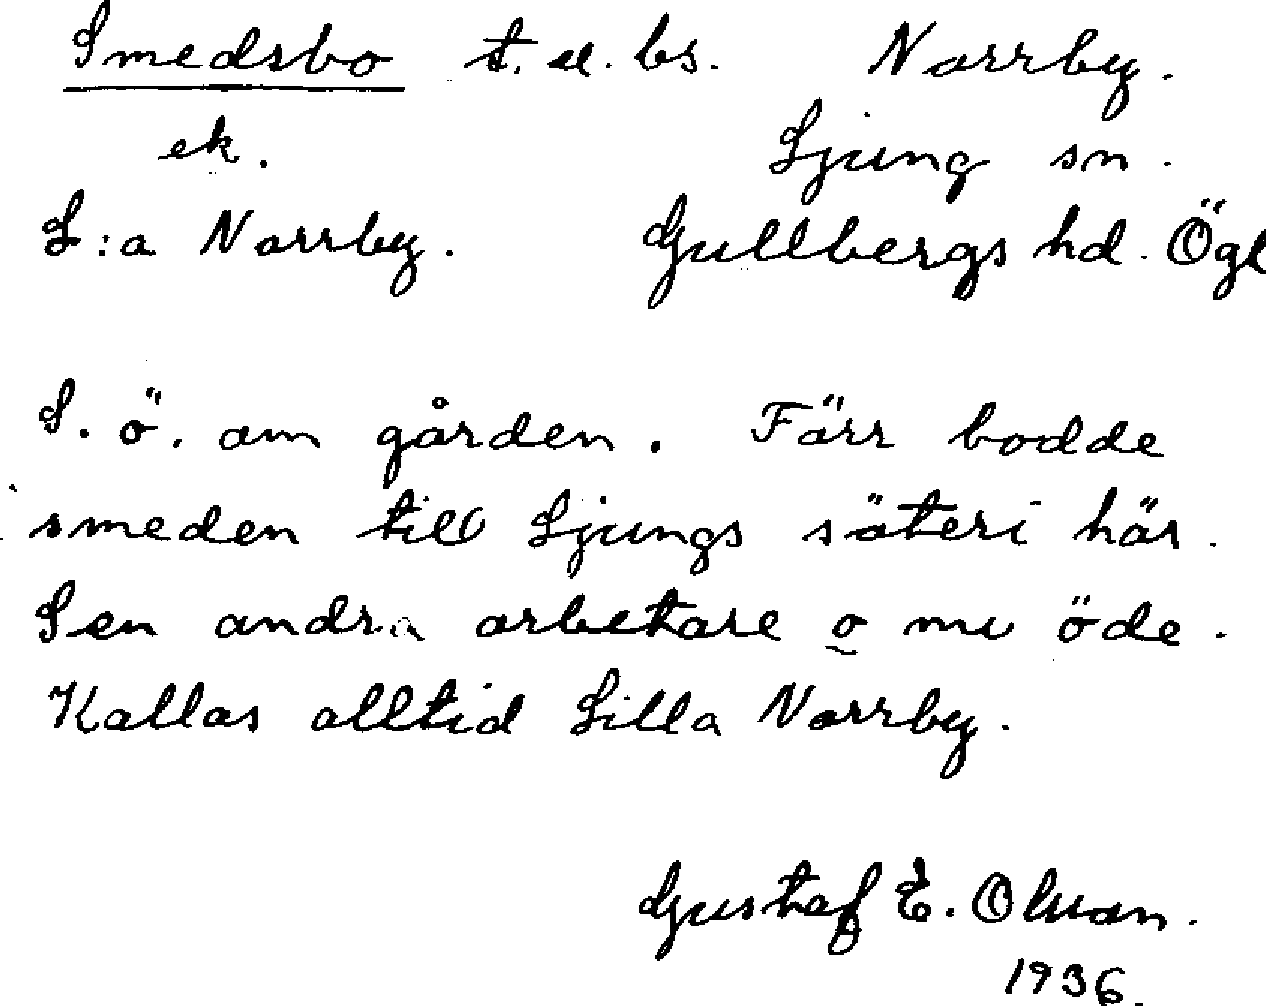 Smedsbo t. u. bs. Norrby.
ek. Ljung sn.
L:a Norrby. Gullbergs hd. Ögl
S. ö. om gården. Förr bodde
smeden till Ljungs säteri här.
Sen andra arbetare o nu öde.
Kallas alltid Lilla Norrby.
Gustaf E. Olson.
1936.